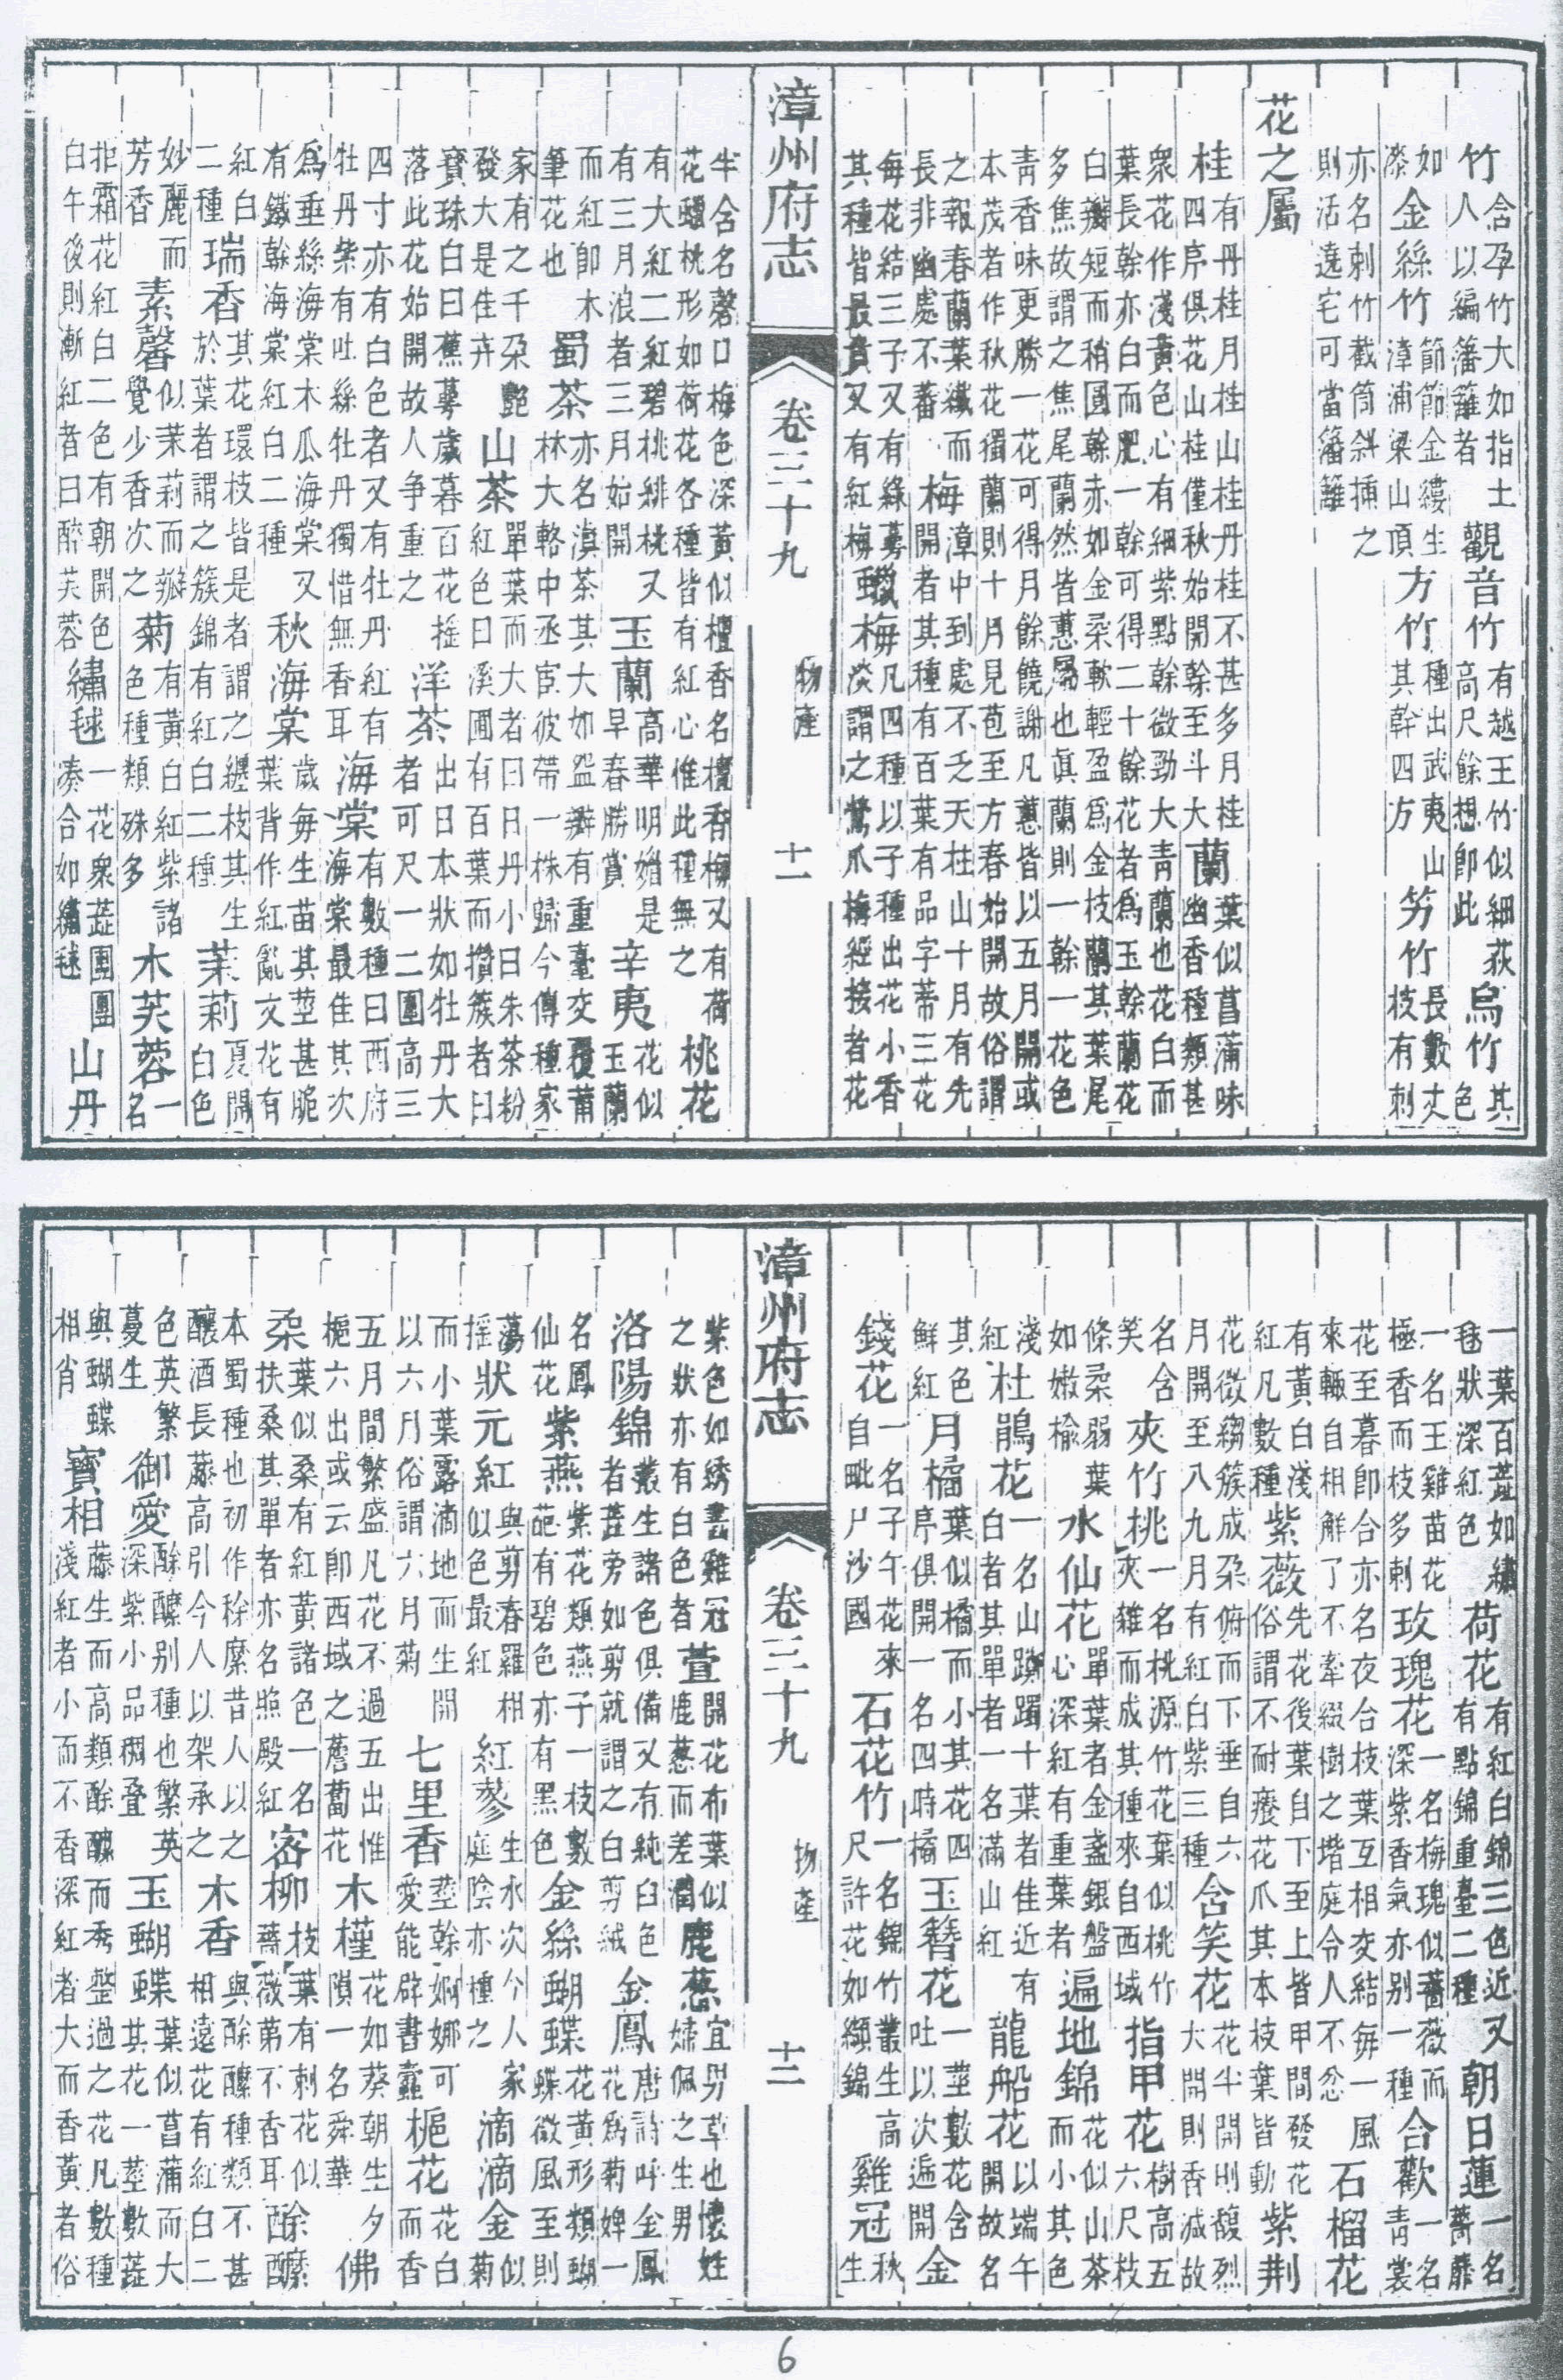 竹含孕竹大如指土人以編籓籬者觀音竹有越王竹似細荻高尺餘想即此烏竹其色
如漆金絲竹節節金縷生漳浦梁山頂方竹種出武夷山其幹四方竻竹長數丈枝有刺
亦名刺竹截筒斜插之則活遶宅可當籓籬
花之屬
桂有丹桂月桂山桂丹桂不甚多月桂四序俱花山桂僅秋始開幹至斗大蘭葉似菖蒲味幽香種類甚
衆花作淺黃色心有細紫點幹微勁大青蘭也花白而葉長幹亦白而肥一幹可得二十餘花者爲玉幹蘭花
白瓣短而稍圓幹赤如金朶軟輕盈爲金枝蘭其葉尾多焦故謂之焦尾蘭然皆蕙屬也眞蘭則一幹一花色
青香味更勝一花可得月餘饒謝凡蕙皆以五月開或本茂者作秋花獨蘭則十月見苞至方春始開故俗謂
之報春蘭葉纎而長非幽處不蕃梅漳中到處不乏天柱山十月有先開者其種有百葉有品字蒂三花
每花結三子又有綠萼其種皆最貴又有紅梅蠟梅凡四種以子種出花小香淡謂之驚爪梅經接者花
漳州府志 卷三十九 物產 十一
半含名磬口梅色深黃似檀香名檀香梅又有荷花蠟桃形如荷花各種皆有紅心惟此種無之桃花
有大紅二紅碧桃緋桃又有三月浪者三月始開玉蘭高華明媚是早春勝賞辛夷花似玉蘭
而紅即木筆花也蜀茶亦名滇茶其大如盌瓣有重臺交覆莆林大輅中丞宦彼帶一株歸今傳種家
家有之千朶艷發大是佳卉山茶單葉而大者曰日丹小曰朱茶粉紅色曰溪圃有百葉而攢簇者曰
寶珠白曰蕉萼歲暮百花搖落此花始開故人争重之洋茶出日本狀如牡丹大者可尺一二圍高三
四寸亦有白色者又有牡丹紅有牡丹紫有吐絲牡丹獨惜無香耳海棠有數種曰西府海棠最佳其次
爲垂絲海棠木瓜海棠又有鐵幹海棠紅白二種秋海棠歲每生苗其莖甚脆葉背作紅亂文花有
紅白二種瑞香其花環枝皆是者謂之纒枝其生於葉者謂之簇錦有紅白二種茉莉夏開白色
妙麗而芳香素馨似茉莉而瓣覺少香次之菊有黃白紅紫諸色種類殊多木芙蓉一名
拒霜花紅白二色有朝開色白午後則漸紅者曰醉芙蓉繡毬一花衆蕋團團凑合如繡毬山丹
一葉百蕋如繡毬狀深紅色荷花有紅白錦三色近又有點錦重臺二種朝日蓮一名薔蘼
一名王雞苗花極香而枝多刺玫瑰花一名梅瑰似薔薇而深紫香氣亦别一種合歡一名青裳
花至暮即合亦名夜合枝葉互相交結每一風來輙自相解了不牽綴樹之堦庭令人不忿石榴花
有黃白淺紅凡數種紫薇先花後葉自下至上皆甲間發花俗謂不耐癢花爪其本枝葉皆動紫荆
花微縐簇成朶俯而下垂自六月開至八九月有紅白紫三種含笑花花半開則馥烈大開則香減故
名含笑夾竹桃一名桃源竹花葉似桃竹夾雜而成其種來自西域指甲花樹高五六尺枝
條柔弱葉如嫩楡水仙花單葉者金盞銀盤心深紅有重葉者遍地錦花似山茶而小其色
淺紅杜鵑花一名山躑躅十葉者佳近有白者其單者一名滿山紅龍船花以端午開故名
其色鮮紅月橘葉似橘而小其花四序俱開一名四時橘玉簪花一莖數花含吐以次遍開金
錢花一名子午花來自毗尸沙國石花竹一名錦竹叢生高尺許花如纈錦雞冠秋生
漳州府志 卷三十九 物產 十二
紫色如綉畫雞冠之狀亦有白色者萱開花布葉似鹿葱而差濶鹿葱宜男草也懷姙婦佩之生男
洛陽錦叢生諸色俱備又有純白色者蕋旁如剪就謂之白剪絨金鳳唐詩呼金鳳花爲菊婢一
名鳳仙花紫燕紫花類燕子一枝數葩有碧色亦有黑色金絲蝴蝶花黃形類蝴蝶微風至則
蕩搖狀元紅與剪春羅相似色最紅紅蔘生水次今人家庭陰亦種之滴滴金似菊
而小葉露滴地而生開以六月俗謂六月菊七里香莖幹婀娜可愛能辟書蠧梔花花白而香
五月間繁盛凡花不過五出惟梔六出或云即西域之薝蔔花木槿花如葵朝生夕隕一名舜華佛
朶葉似桑有紅黃諸色一名扶桑其單者亦名照殿紅密柳枝葉有刺花似薔薇第不香耳酴醾
本蜀種也初作稌縻昔人以之釀酒長藤高引今人以架承之木香與酴醾種類不甚相遠花有紅白二
色英繁蔓生御愛酴醾别種也繁英深紫小品稠叠玉蝴蝶葉似菖蒲而大其花一莖數蕋
與蝴蝶相肖寶相藤生而高類酴醾而秀整過之花凡數種淺紅者小而不香深紅者大而香黃者俗
6